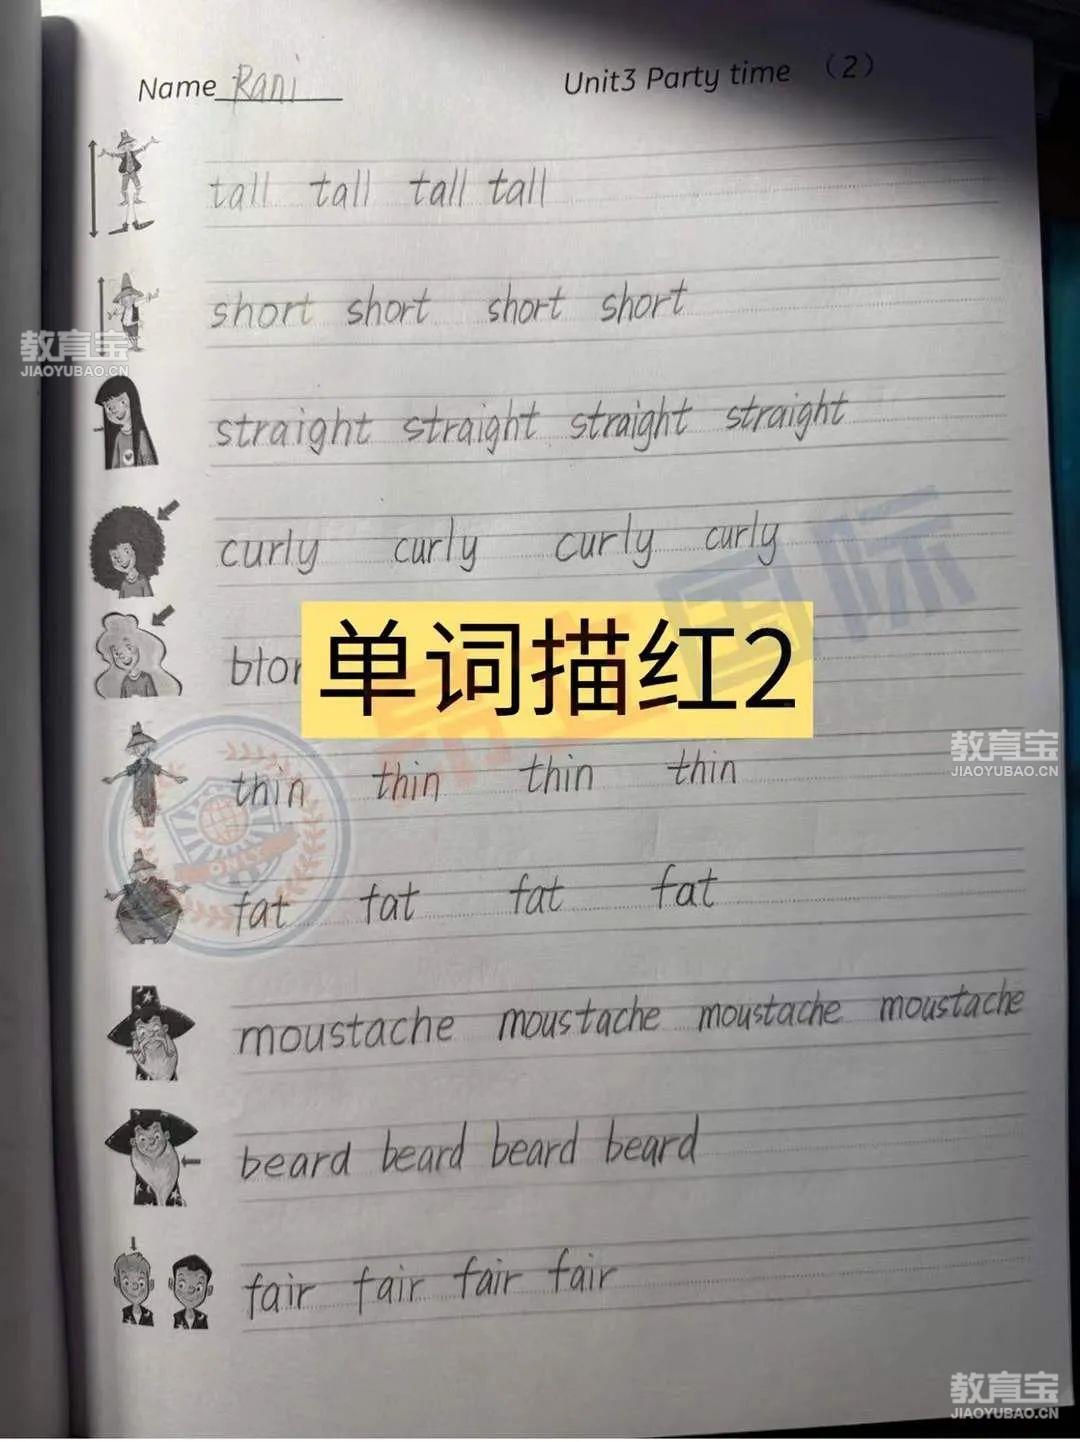 Name Rani
Unit3 Party time （2）
tall tall tall tall
short short short short
教育宝
JIAOYUBAO.CN
straight straight straight straight
curly curly curly curly
国际
单词描红2
thin thin thin thin
教育宝
JIAOYUBAO.CN
fat fat fat fat
moustache moustache moustache moustache
beard beard beard beard
fair fair fair fair
教育宝
JIAOYUBAO.CN